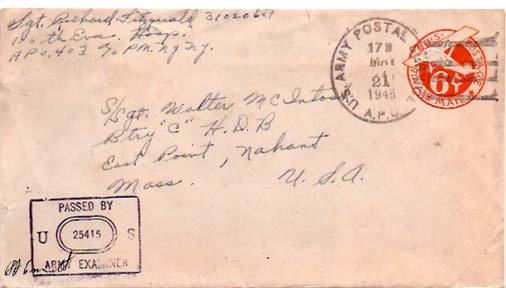 Sgt. Richard Fitzgerald 31020621
110 th Evac. Hosp.
A P O. 403 c/o P.M. N.y N.y.
U.S. ARMY POSTAL
179
MAY
21
1945
A.P.O.
U.S. POSTAGE
6¢
VIA AIR MAIL
S/Sgt. Walter McIntosh
Btry "C" H.D.B
East Point, Nahant
Mass. U.S.A.
PASSED BY
U 25415 S
ARMY EXAMINER